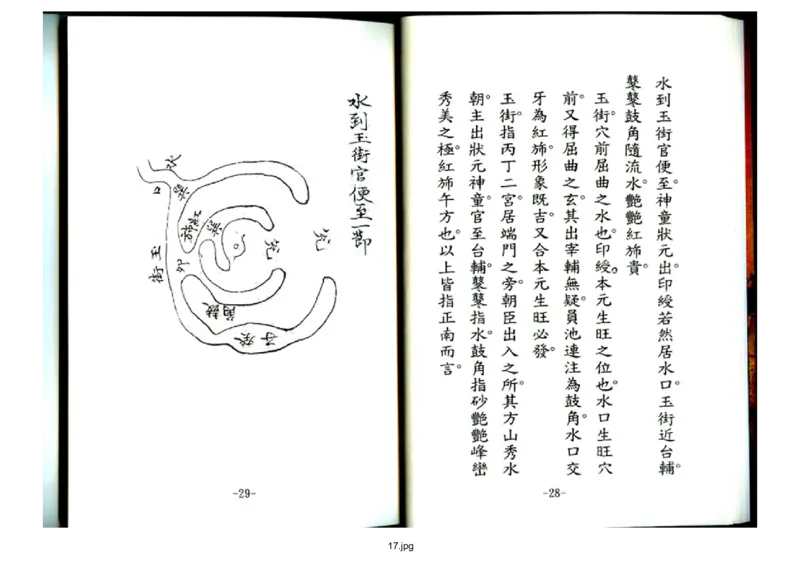 水到玉街官便至。神童狀元出。印綬若然居水口。玉街近台輔。
鼕鼕鼓角隨流水。艷艷紅斾貴。
玉街。穴前屈曲之水也。印綬。本元生旺之位也。水口生旺穴
前。又得屈曲之玄。其出宰輔無疑。員池連注為鼓角。水口交
牙為紅斾。形象既吉。又合本元生旺必發。
玉街。指丙丁二宮。居端門之旁。朝臣出入之所。其方山秀水
朝。主出狀元神童。官至台輔。鼕鼕指水。鼓角指砂。艷艷峰巒
秀美之極。紅斾午方也。以上皆指正南而言。
-28-
水到玉街官便至一節
水
口
紅斾
玉街
卯
鼓角
-29-
17.jpg